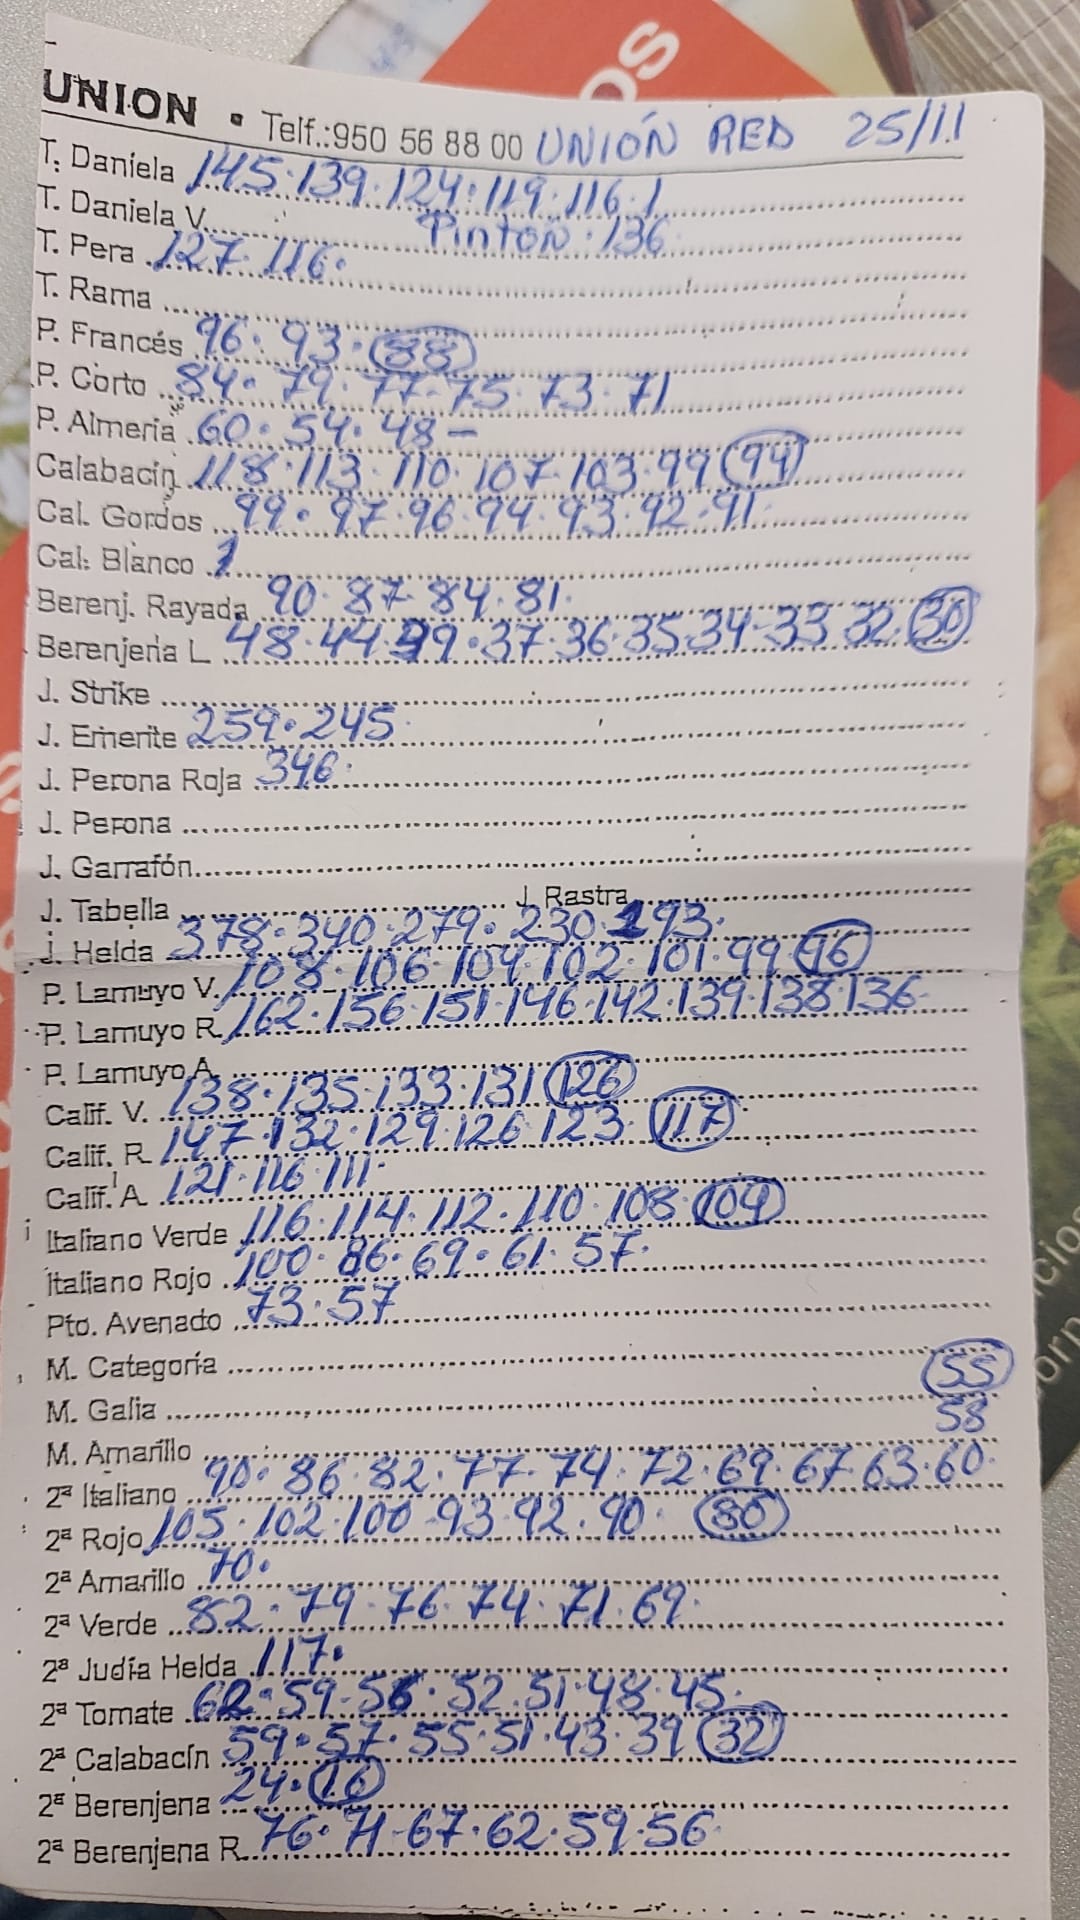 OS
UNION • Telf.:950 56 88 00 UNIÓN RED 25/11
T. Daniela 145·139·124·119·116·1
T. Daniela V. Pintón: 136
T. Pera 127·116·
T. Rama
P. Francés 96·93·88
P. Corto 84·79·77·75·73·71
P. Almería 60·54·48-
Calabacín 118·113·110·107·103·99 94
Cal. Gordos 99·97·96·94·93·92·91
Cal. Blanco
Berenj. Rayada 90·87·84·81·
Berenjena L 48·44·39·37·36·35·34-33·32·30
J. Strike
J. Emerite 259·245
J. Perona Roja 346·
J. Perona
J. Garrafón
J. Tabella J. Rastra
J. Helda 378·340·279·230·193·
P. Lamuyo V. 108·106·104·102·101·99 96
P. Lamuyo R. 162·156·151·146·142·139·138·136
P. Lamuyo A.
Calif. V. 138·135·133·131 126
Calif. R. 147·132·129·126·123· 117
Calif. A. 121·116·111·
Italiano Verde 116·114·112·110·108·104
Italiano Rojo 100·86·69·61·57·
Pto. Avenado 73·57
M. Categoría 55
M. Galia 58
M. Amarillo
2ª Italiano 90·86·82·77·74·72·69·67·63·60·
2ª Rojo 105·102·100·93·92·90· 80
2ª Amarillo 70·
2ª Verde 82·79·76·74·71·69·
2ª Judía Helda 117·
2ª Tomate 62·59-56·52·51·48·45·
2ª Calabacín 59·57·55·51·43·39 32
2ª Berenjena 24·16
2ª Berenjena R. 76·71-67·62·59·56·